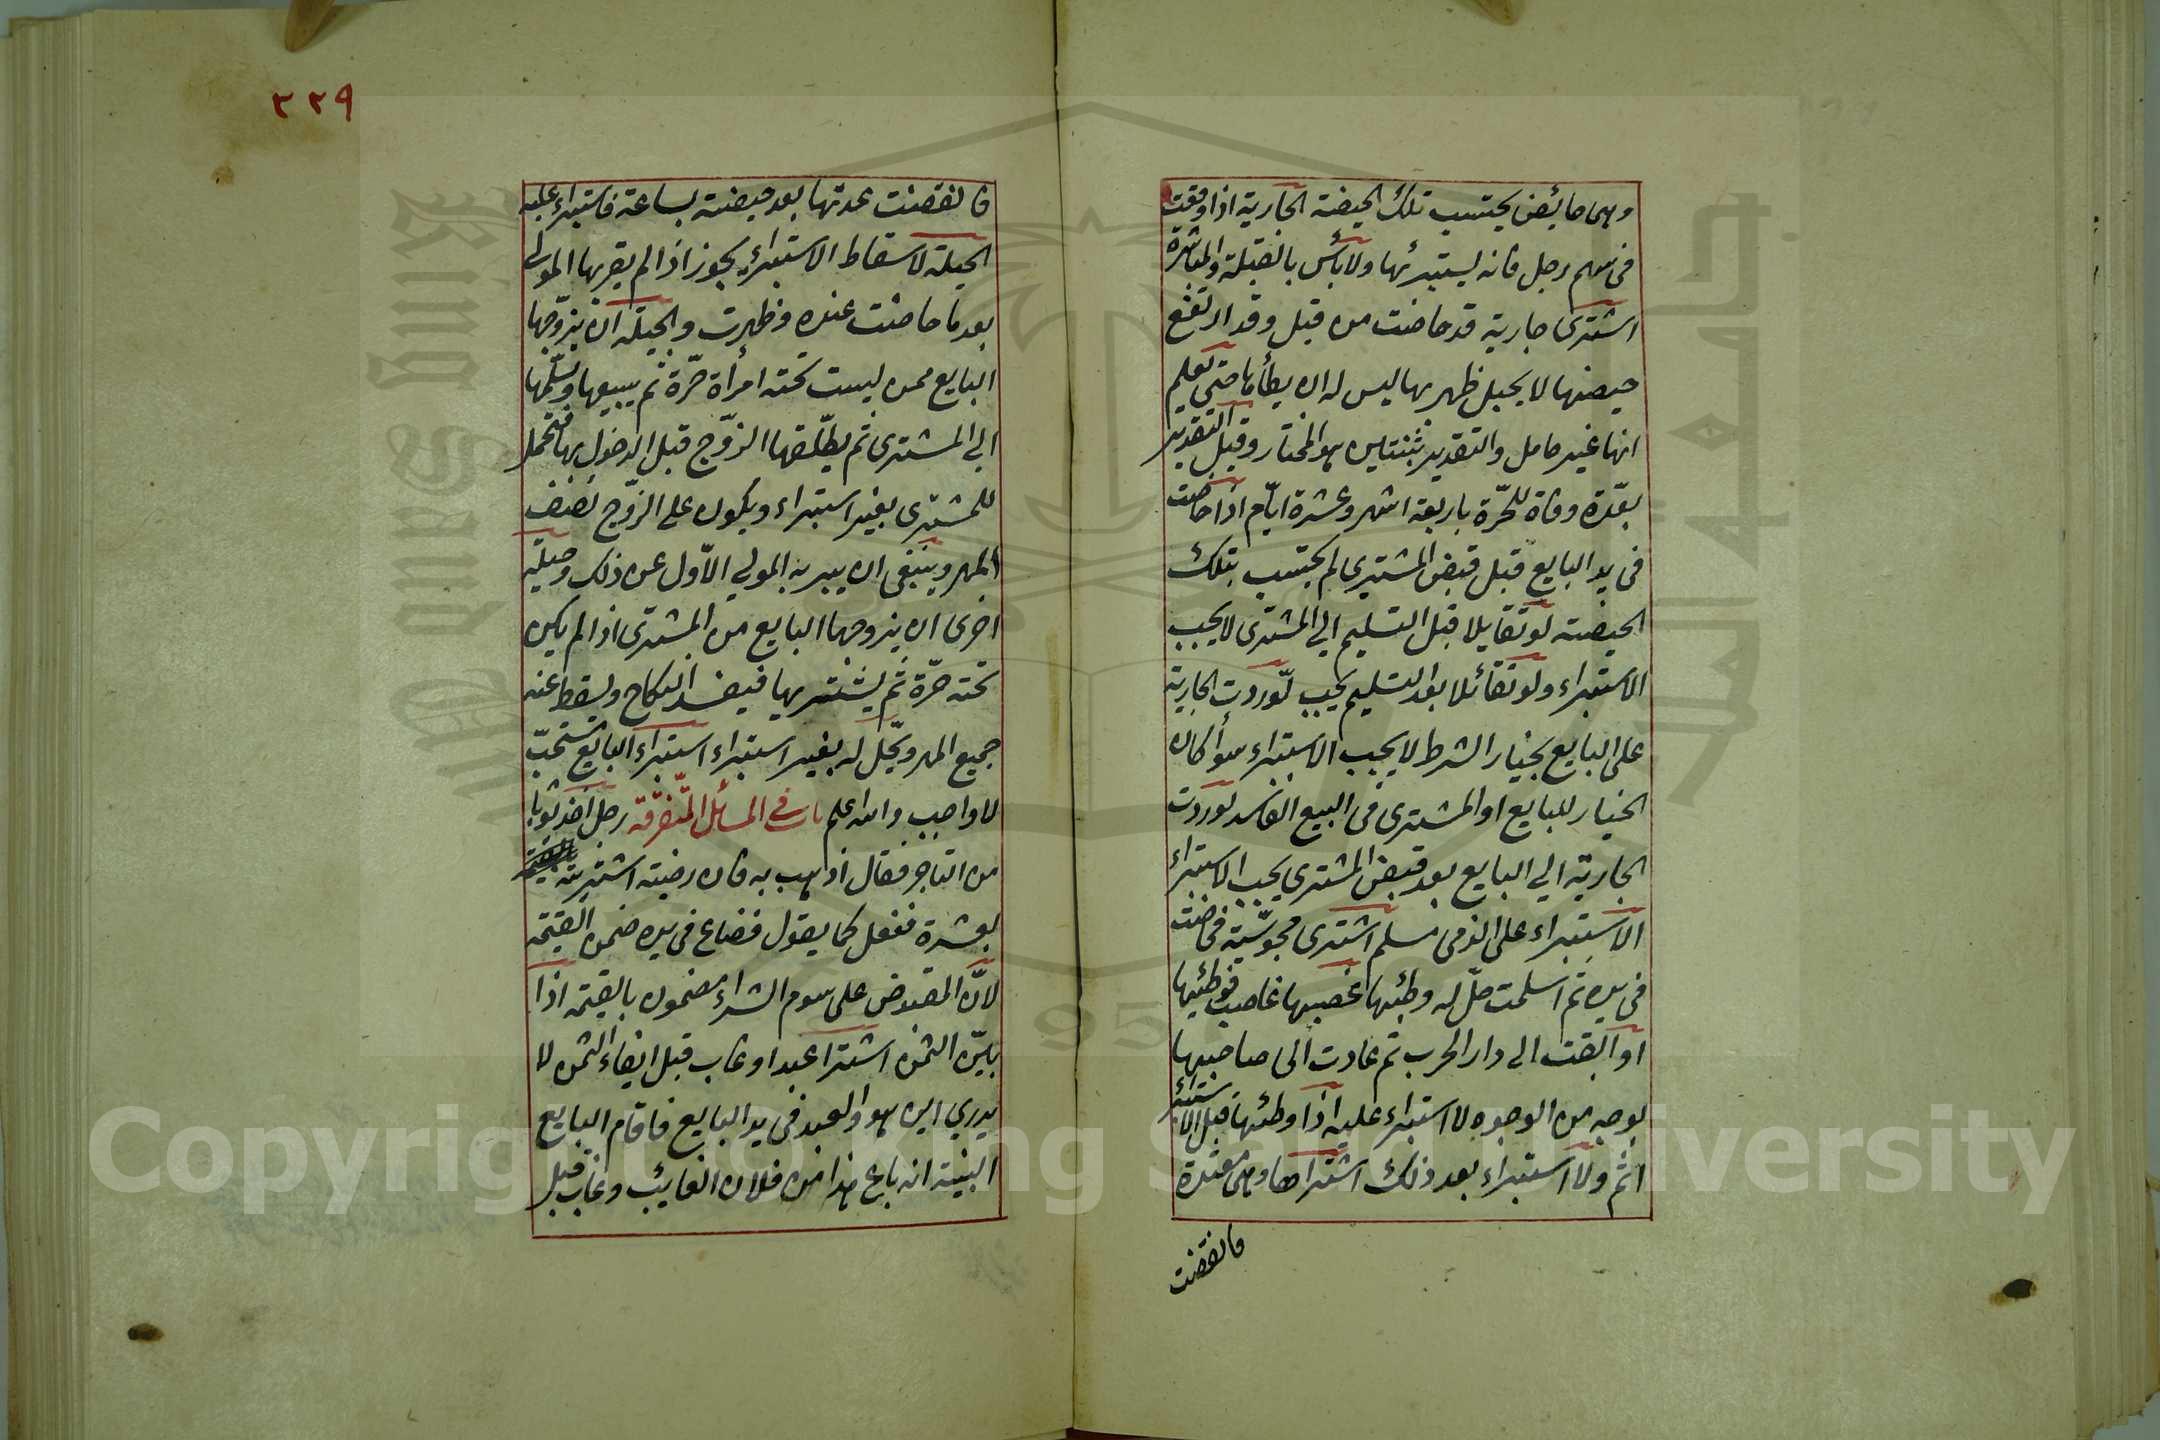 وهى حائض يحتسب تلك الحيضة الجارية اذا وقعت
فى سهم رجل فانه يستبرئها ولا بأس بالقبلة والمباشرة
اشترى جارية قد حاضت من قبل وقد ارتفع
حيضها لا يحبل ظهر بها ليس له ان يطأها حتى تعلم
انها غير حامل والتقدير بثنتايس هو المختار وقيل التقدير
بعدة وفاة للحرّة باربعة اشهر وعشرة ايّام اذا حاضت
فى يد البايع قبل قبض المشترى لم يحتسب بتلك
الحيضة لو تقايلا قبل التسليم الي المشترى لا يجب
الاستبراء ولو تقائلا بعد التسليم يجب لوردت الجارية
على البايع بخيار الشرط لا يجب الاستبراء سوأ كان
الخيار للبايع او المشترى فى البيع الفاسد لوردت
الجارية الي البايع بعد قبض المشتري يجب الاستبراء
الاستبراء على الذمى مسلم اشترى مجوسيّة فحاضت
فى يده ثم اسلمت حلّ له وطئها غصبها غاصب فوطئيها
او ابقت الى دار الحرب ثم عادت الى صاحبها
بوجه من الوجوه لا استبراء عليه اذا وطئها قبل الاستبراء
اثم ولا استبراء بعد ذلك اشتراها وهى معتدة
فانقضت
٣٣٩
فانقضت عدتها بعد حيضته بساعة فاستبراء عليه
الحيلة لاسقاط الاستبراء يجوز اذا لم يقربها المولى
بعد ما حاضت عنده وظهرت والحيلة ان يزوّجها
البايع ممن ليست تحته امرأة حرّة ثم يبيعها ويسلّمها
الي المشترى ثم يطلّقها الزوّج قبل الدخول بها فتحل
للمشترى بغير استبراء ويكون على الزوّج نصف
المهر وينبغى ان يبريه المولي الاّول عن ذلك وحيلة
اخرى ان يزوجها البايع من المشترى اذا لم يكن
تحته حرّة ثم يشتريها فيفسد النكاح ويسقط عنه
جميع المهر ويحّل له بغير استبراء استبراء البايع مستحبّ
لا واجب والله اعلم باب في المسائل المتفرّقة رجل اخذ ثوبا
من التاجر فقال اذهب به فان رضيته اشتريته
بعشرة ففعل كما يقول فضاع فى يده ضمن القيمة
لانّ المقبوض على سوم الشراء مضمون بالقيمة اذا
بيّن الثمن اشترا عبدا وغاب قبل ايفاء الثمن لا
يدري اين هو والعبد فى يد البايع فاقام البايع
البينة انه باع هذا من فلان الغايئب وغاب قبل
Copyright © King Saud University